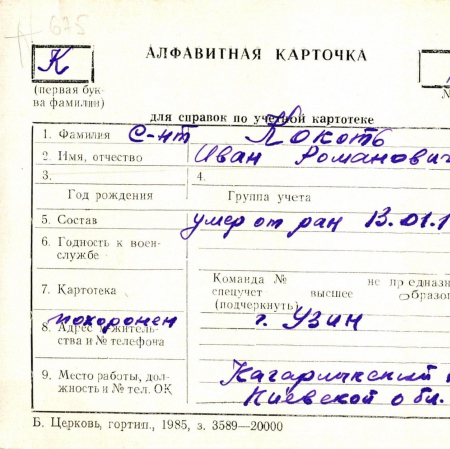 675
К
АЛФАВИТНАЯ КАРТОЧКА
(первая бук-
ва фамилии)
для справок по учетной картотеке
1. Фамилия с-нт Кокоть
2. Имя, отчество Иван Романович
3. 4.
Год рождения Группа учета
5. Состав умер от ран 13.01.1
6. Годность к воен-
службе
7. Картотека
Команда № не предназн
спецучет высшее образо
(подчеркнуть)
похоронен г. Узин
8. Адрес житель-
ства и № телефона
9. Место работы, дол-
жность и № тел. ОК
Кагарлыкский
Киевской обл.
Б. Церковь, гортип., 1985, з. 3589—20000